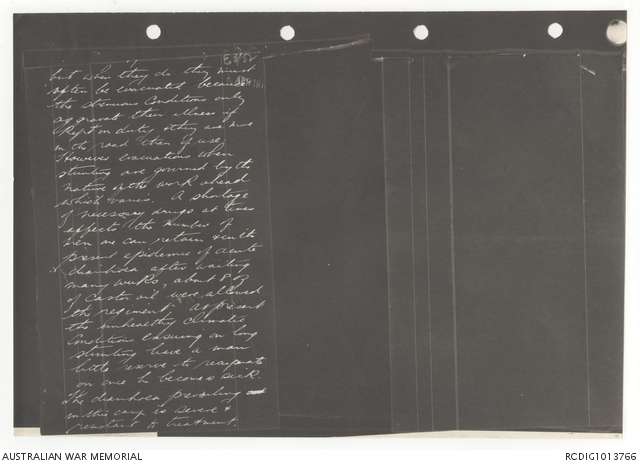 but when they do they must
often be evacuated because
the arduous conditions only
aggravate their illness if
kept on duty & they are more
in the road than of use.
However evacuations when
stunting are governed by the
nature of the work ahead
which varies. A shortage
of necessary drugs at times
affects the number of
men we can retain & in the
present epidemic of acute
diarrhoea after waiting
many weeks, about 8 oz
of Castor oil were allowed
the regiment. At present
the unhealthy climatic
conditions ensuing on long
stunting have a man
little reserve to recuperate
on once he becomes sick.
The diarrhoea prevailing
in this camp is severe &
resistant to treatment.
AUSTRALIAN WAR MEMORIAL
RCDIG1013766